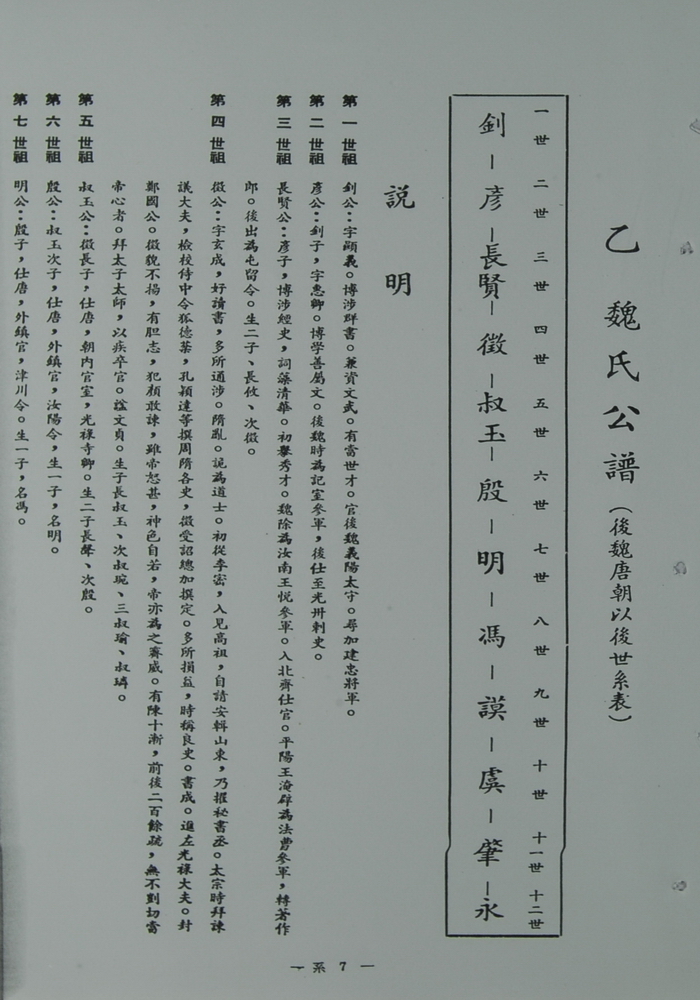 乙 魏氏公譜(後魏唐朝以後世系表)
一世 二世 三世 四世 五世 六世 七世 八世 九世 十世 十一世 十二世
釗—彥—長賢—徵—叔玉—殷—明—馮—謨—虞—肇—永
說明
第一世祖 釗公:字顯義。博涉群書。兼資文武。有當世才。官後魏義陽太守。尋加建忠將軍。
第二世祖 彥公:釗子,字惠卿。博學善屬文。後魏時為記室參軍,後仕至光州刺史。
第三世祖 長賢公:彥子,博涉經史,詞藻清華。初舉秀才。魏除為汝南王悅參軍。入北齊仕官。平陽王淹辟為法曹參軍,轉著作
郎。後出為屯留令。生二子、長攸、次徵。
第四世祖 徵公:字玄成,好讀書,多所通涉。隋亂。詭為道士。初從李密,入見高祖,自請安輯山東,乃擢秘書丞。太宗時拜諫
議大夫,檢校侍中令狐德棻,孔穎達等撰周隋各史,徵受詔總加撰定。多所損益,時稱良史。書成。進左光祿大夫。封
鄭國公。徵貌不揚,有胆志,犯顏敢諫,雖帝怒甚,神色自若,帝亦為之霽威。有陳十漸,前後二百餘疏,無不剴切當
帝心者。拜太子太師,以疾卒官。諡文貞。生子長叔玉、次叔琬、三叔瑜、叔璘。
第五世祖 叔玉公:徵長子,仕唐,朝內官室,光祿寺卿。生二子長膺、次殷。
第六世祖 殷公:叔玉次子,仕唐,外鎮官,汝陽令,生一子,名明。
第七世祖 明公:殷子,仕唐,外鎮官,津川令。生一子,名馮。
— 系 7 —